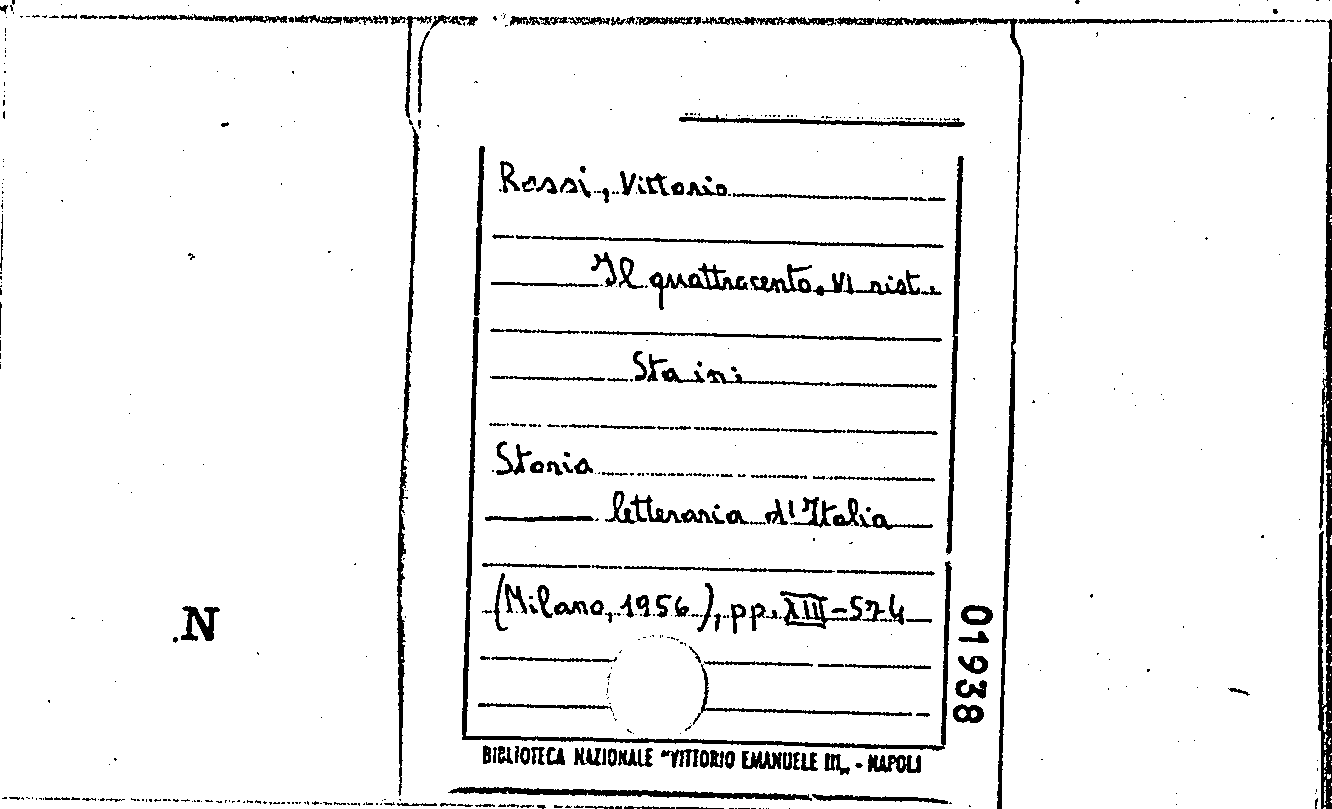 Rossi, Vittorio
Il quattrocento. VI rist.
Sta in:
Storia
letteraria d'Italia
(Milano, 1956), pp. XIII-574
N
01938
BIBLIOTECA NAZIONALE "VITTORIO EMANUELE III" - NAPOLI